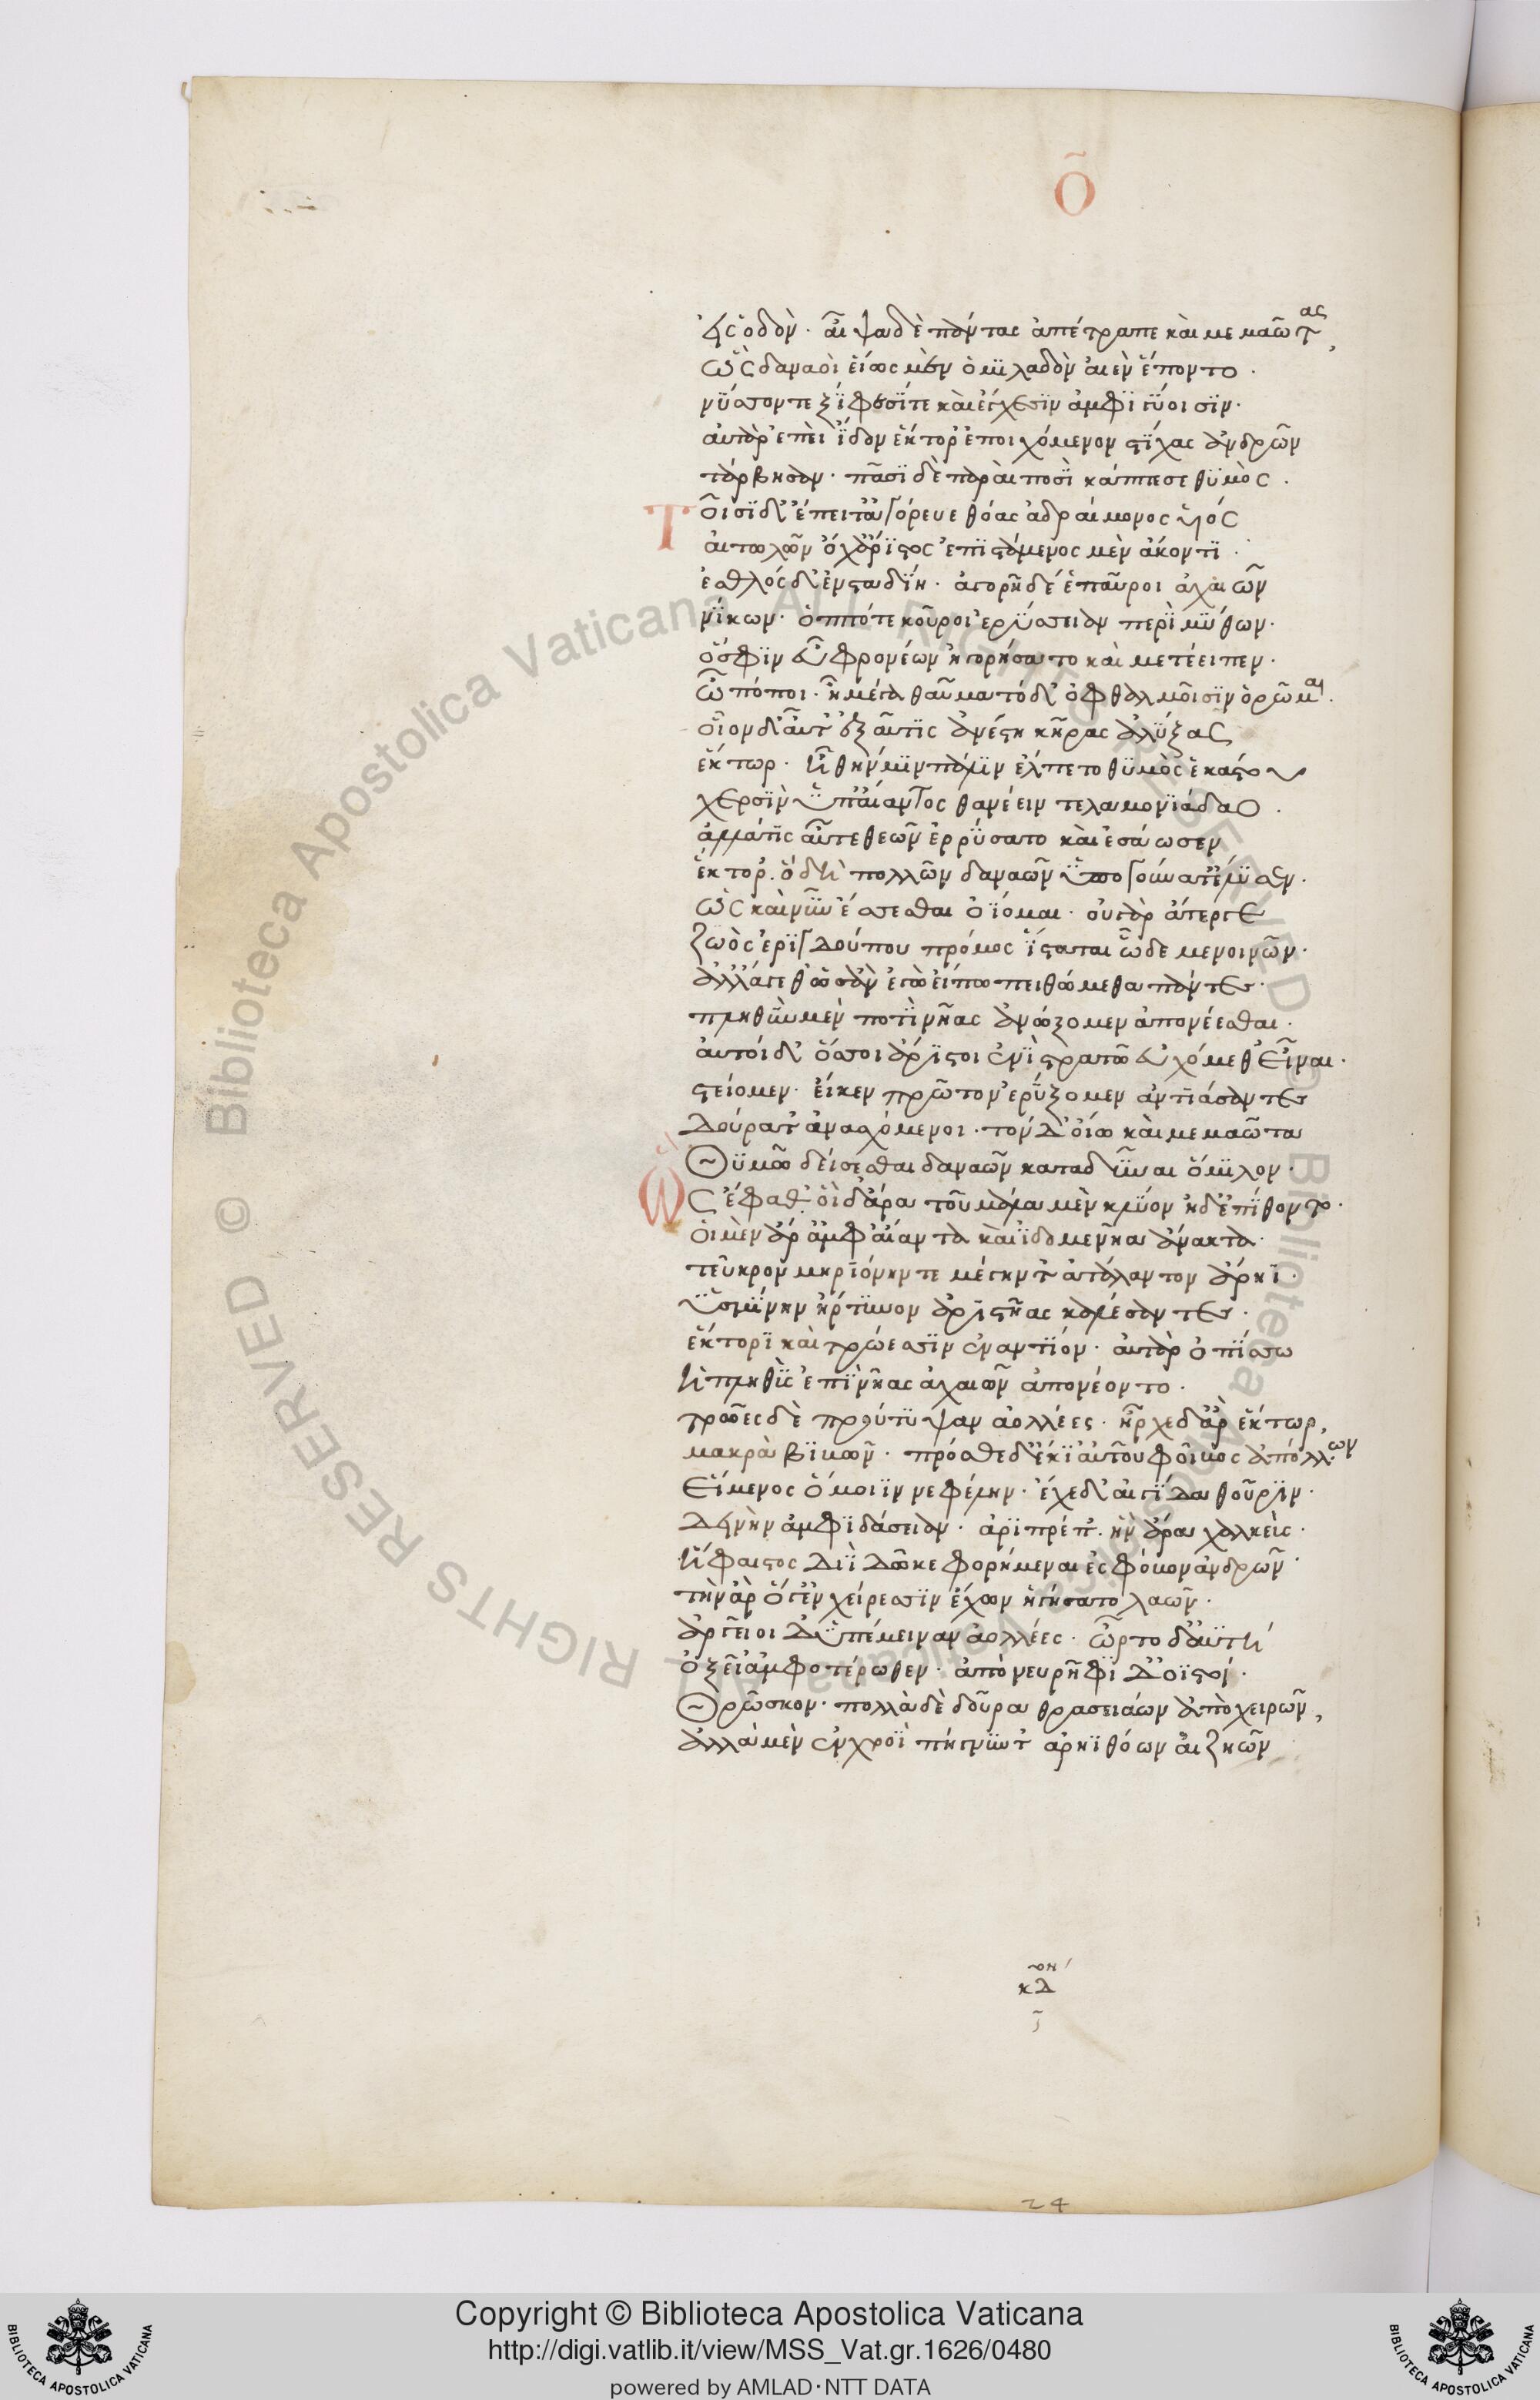 Ο
ἐς ὁδόν. αἶψα δὲ πάντας ἀπέτραπε καὶ μεμαῶτας,
ὣς δαναοὶ εἵως μὲν ὁμιλαδὸν αἰὲν ἕποντο.
νύσσοντες ξίφεσίν τε καὶ ἔγχεσιν ἀμφιγύοισιν.
αὐτὰρ ἐπεὶ ἴδον ἕκτορ' ἐποιχόμενον στίχας ἀνδρῶν
τάρβησαν. πᾶσι δὲ παραὶ ποσὶ κάππεσε θυμός.
Τοῖσι δ' ἔπειτ' ἀγόρευε θόας ἀνδραίμονος υἱός
αἰτωλῶν ὄχ' ἄριστος ἐπιστάμενος μὲν ἄκοντι.
ἐσθλὸς δ' ἐν σταδίη. ἀγορῆ δέ ἑ παῦροι ἀχαιῶν
νίκων. ὁππότε κοῦροι ἐρίσσειαν περὶ μύθων.
ὅ σφιν ἐϋφρονέων ἀγορήσατο καὶ μετέειπεν.
ὢ πόποι. ἦ μέγα θαῦμα τόδ' ὀφθαλμοῖσιν ὁρῶμαι.
οἷον δ' αὖτ' ἐξαῦτις ἀνέστη κῆρας ἀλύξας
ἕκτωρ. ἦ θήν μιν μάλιν ἔλπετο θυμὸς ἑκάστου
χερσὶν ὑπ' αἴαντος θανέειν τελαμωνιάδαο.
ἀλλά τις αὖτε θεῶν ἐρρύσατο καὶ ἐσάωσεν
ἕκτορ'. ὃ δὴ πολλῶν δαναῶν ὑπὸ γούνατ' ἔλυσεν.
ὡς καὶ νῦν ἔσσεσθαι ὀΐομαι. οὐ γὰρ ἄτερ γε
ζηνὸς ἐριγδούπου πρόμος ἵσταται ὧδε μενοινῶν.
ἀλλ' ἄγεθ' ὡς ἂν ἐγὼ εἴπω πειθώμεθα πάντες.
πληθὺν μὲν ποτὶ νῆας ἀνώξομεν ἀπονέεσθαι.
αὐτοὶ δ' ὅσσοι ἄριστοι ἐνὶ στρατῶ εὐχόμεθ' εἶναι.
στείομεν. εἴ κεν πρῶτον ἐρύξομεν ἀντιάσαντες
δούρατ' ἀνασχόμενοι. τὸν δ' οἴω καὶ μεμαῶτα
θυμῶ δείσεσθαι δαναῶν καταδῦναι ὅμιλον.
Ὣς ἔφαθ'. οἱ δ' ἄρα τοῦ μάλα μὲν κλύον ἠδ' ἐπίθοντο.
οἱ μὲν ἄρ' ἀμφ' αἴαντα καὶ ἰδομενῆα ἄνακτα.
τεῦκρον μηριόνην τε μέγην τ' ἀτάλαντον ἄρηϊ.
ὑσμίνην ἤρτυνον ἀριστῆας καλέσαντες.
ἕκτορι καὶ τρώεσσιν ἐναντίον. αὐτὰρ ὀπίσσω
ἡ πληθὺς ἐπὶ νῆας ἀχαιῶν ἀπονέοντο.
τρῶες δὲ προύτυψαν ἀολλέες. ἦρχε δ' ἄρ' ἕκτωρ,
μακρὰ βιβῶν. πρόσθε δ' ἔκι' αὐτοῦ φοῖβος ἀπόλλων
εἱμένος ὤμοιιν νεφέλην. ἔχε δ' αἰγίδα θοῦριν.
δεινὴν ἀμφιδάσειαν. ἀριπρεπέ'. ἣν ἄρα χαλκεὺς.
ἥφαιστος διὶ δῶκε φορήμεναι ἐς φόβον ἀνδρῶν.
τὴν ἄρ' ὅ γ' ἐν χείρεσσιν ἔχων ἡγήσατο λαῶν.
ἀργεῖοι δ' ὑπέμειναν ἀολλέες. ὦρτο δ' ἀϋτὴ
ὀξεῖ' ἀμφοτέρωθεν. ἀπὸ νευρῆφι δ' ὀϊστοί.
θρῶσκον. πολλὰ δὲ δοῦρα θρασειάων ἀπὸ χειρῶν,
ἄλλα μὲν ἐν χροῒ πήγνυτ' ἀρηϊθόων αἰζηῶν
κδ
24
Biblioteca Apostolica Vaticana ALL RIGHTS RESERVED ©
Copyright © Biblioteca Apostolica Vaticana
http://digi.vatlib.it/view/MSS_Vat.gr.1626/0480
powered by AMLAD · NTT DATA
BIBLIOTECA APOSTOLICA VATICANA
BIBLIOTECA APOSTOLICA VATICANA